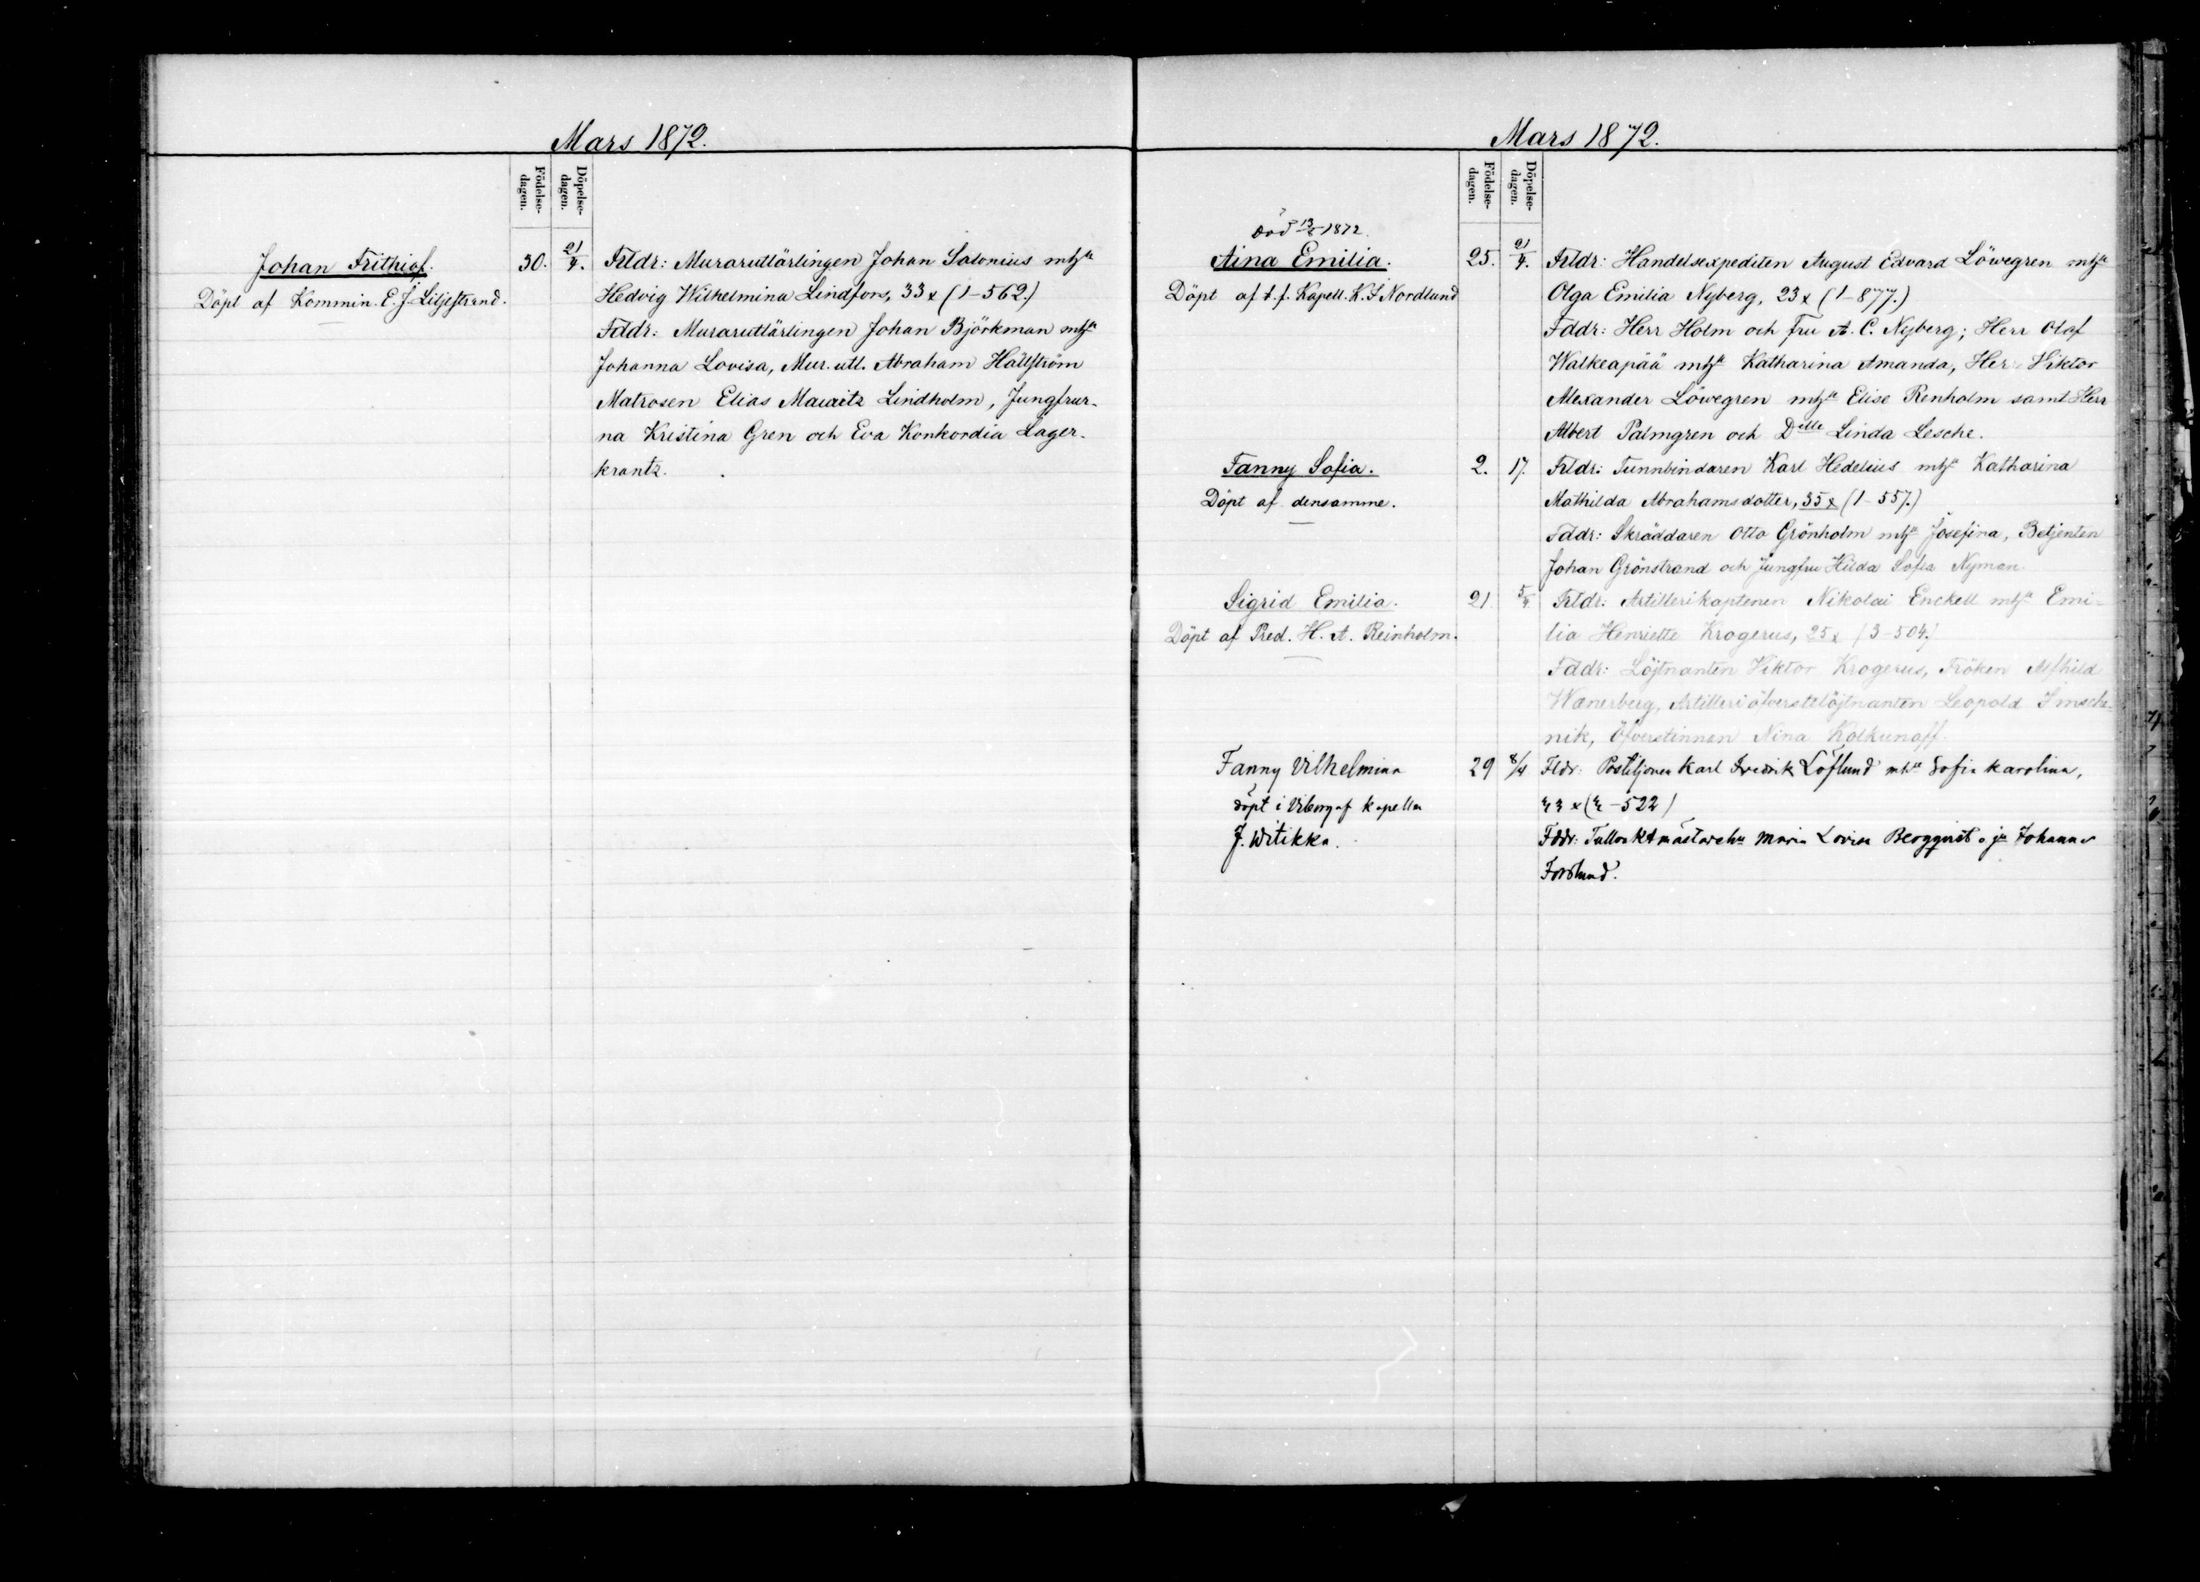 Mars 1872.
Födelse-
dagen.
Döpelse-
dagen.
Johan Frithiof.
Döpt af Kommin. E. J. Liljestrand.
30.
21/4.
Frldr: Murarutlärlingen Johan Salonius mhu
Hedvig Wilhelmina Lindfors, 33 x (1-562.)
Fddr: Murarutlärlingen Johan Björkman mhu
Johanna Lovisa, Mur. utl. Abraham Hällström
Matrosen Elias Mauritz Lindholm, Jungfrur-
na Kristina Gren och Eva Konkordia Lager-
krantz.
Mars 1872.
Födelse-
dagen.
Döpelse-
dagen.
död 1872.
Aina Emilia.
Döpt af t. f. Kapell. K. J Nordlund
25.
21/4.
Frldr: Handelsexpediten August Edvard Löwegren mhu
Olga Emilia Nyberg, 23 x (1-877.)
Fddr: Herr Holm och Fru A. C. Nyberg; Herr Olof
Walkeapää mhu Katharina Amanda, Herr Viktor
Alexander Löwegren mhu Elise Renholm samt Herr
Albert Palmgren och Dlle Linda Lesche.
Fanny Sofia.
Döpt af densamme.
2.
17.
Frldr: Tunnbindaren Karl Hedelius mhu Katharina
Mathilda Abrahamsdotter, 35 x (1-557.)
Fddr: Skräddaren Otto Grönholm mhu Josefina, Betjenten
Johan Grönstrand och Jungfru Hilda Sofia Nyman.
Sigrid Emilia.
Döpt af Pred. H. A. Reinholm.
21
5/4
Frldr: Artillerikaptenen Nikolai Enckell mhu Emi-
lia Henriette Krogerus, 25 x (3-504.)
Fddr: Löjtnanten Viktor Krogerus, Fröken Alfhild
Wanerberg, Artilleriöfverstelöjtnanten Leopold Imsche-
nik, Öfverstinnan Nina Kolkunoff.
Fanny Vilhelmina
döpt i Viborg af kapellan
J. Witikka.
29
8/4
Fldr: Postiljonen Karl Fredrik Löflund mhu Sofia Karolina,
x (-522)
Fddr: Maria Lovisa Bergqvist o ju Johanna
Forslund.